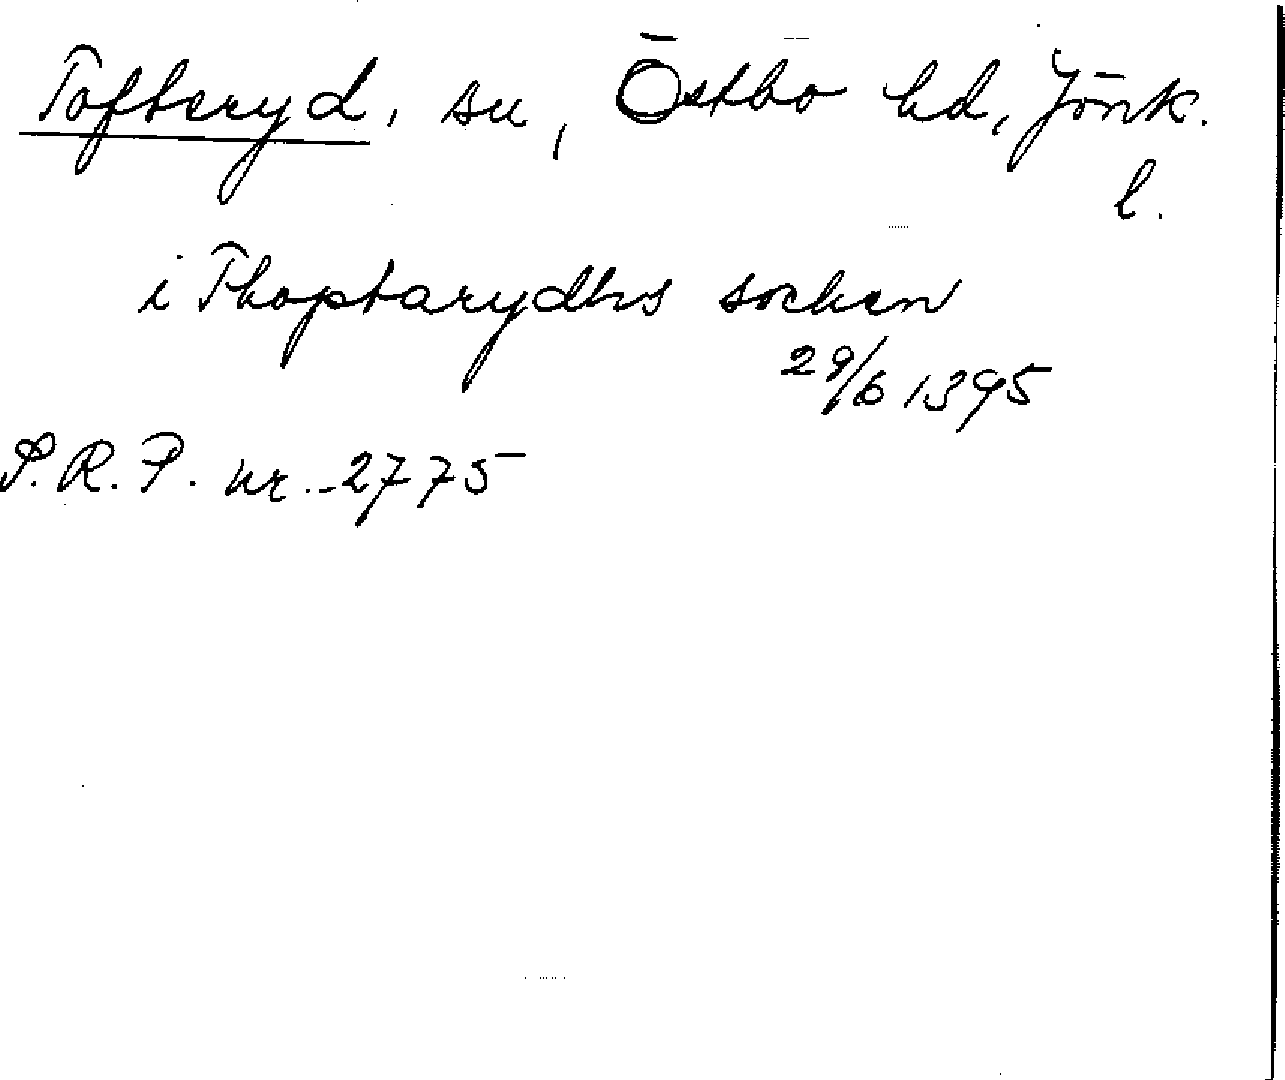 Tofteryd, sn, Östbo hd, Jönk.
l.
i Thoptarydhs sochen
29/6 1395
S.R.P. nr. 2775